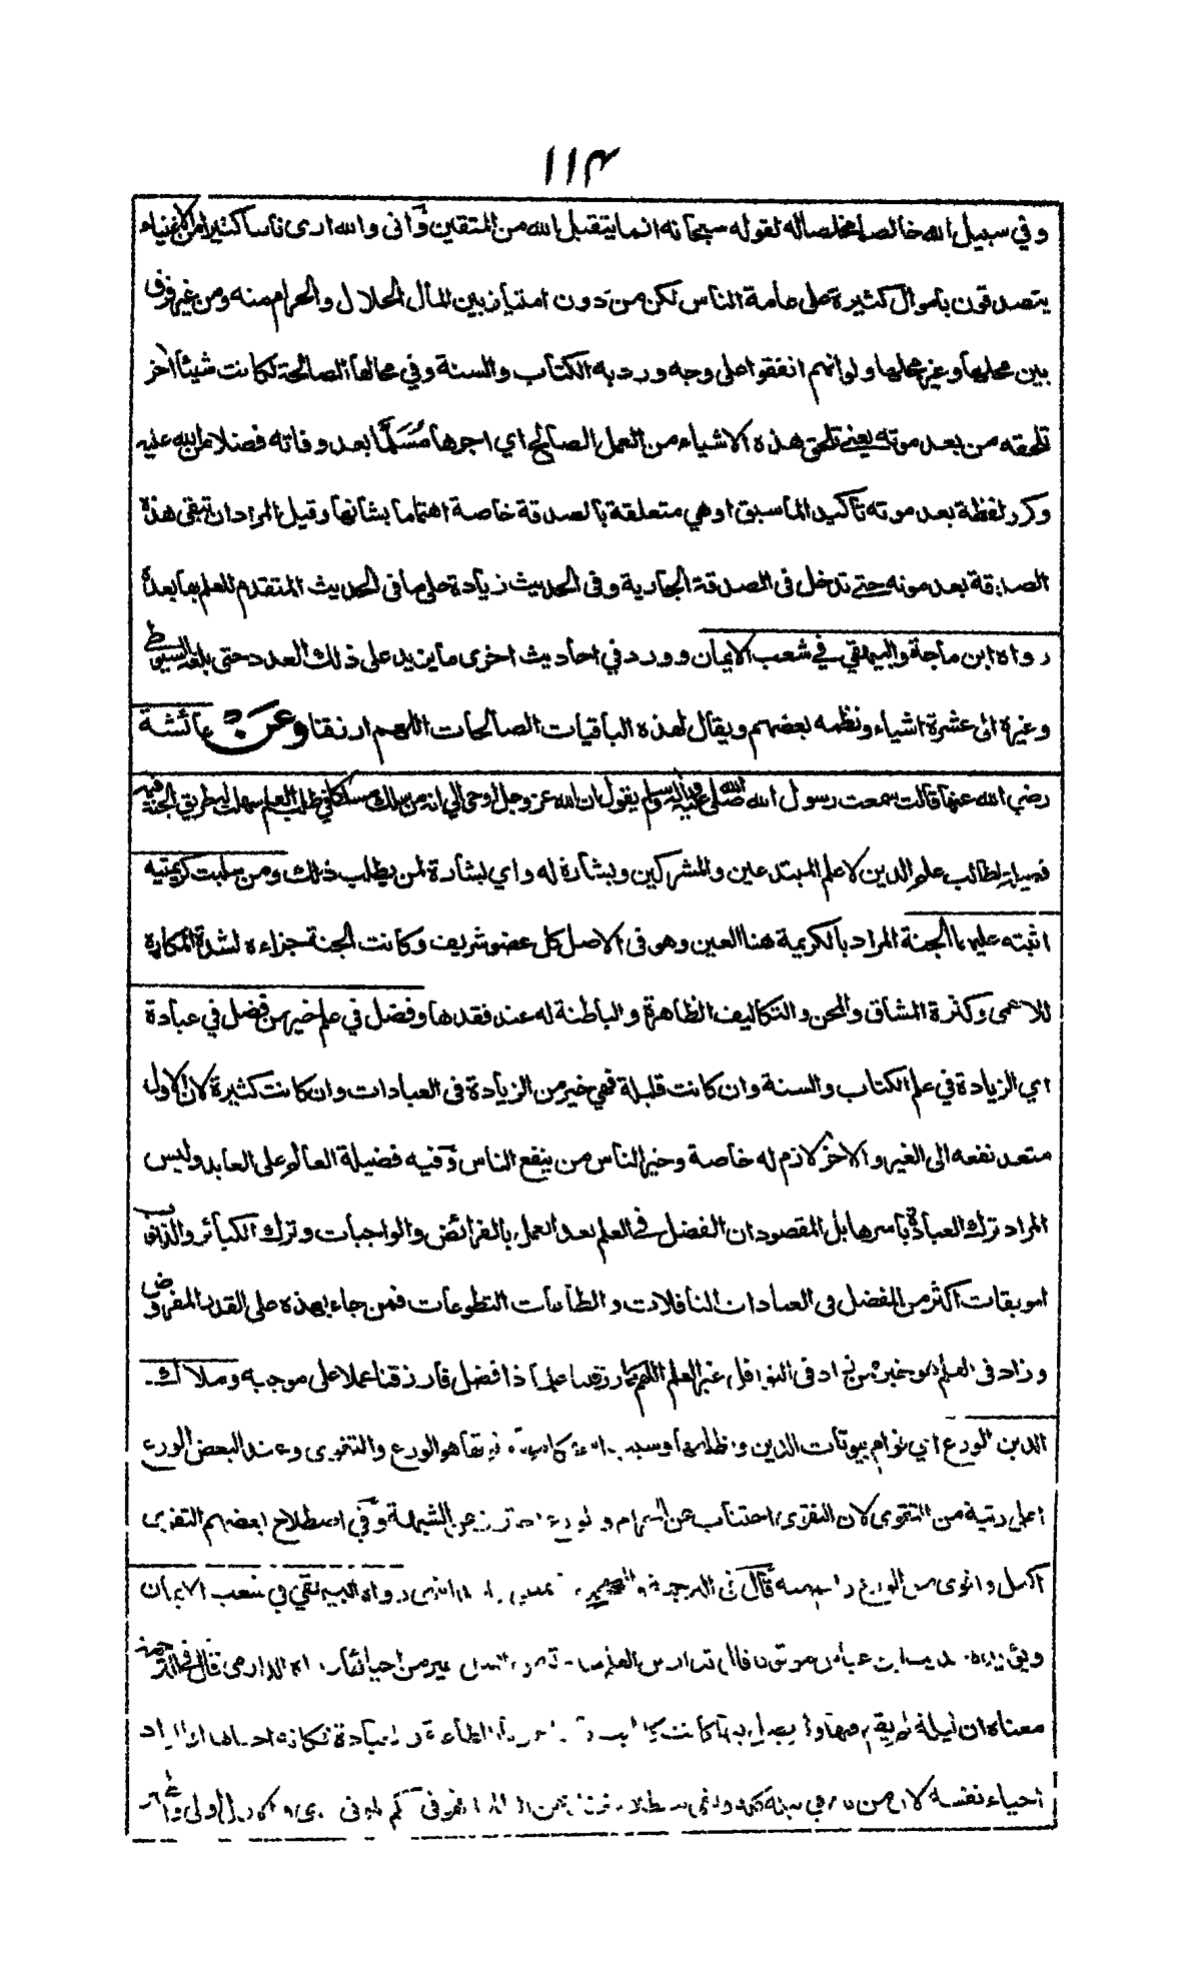 ۱۱۴
وفي سبيل الله خالصا مخلصا له لقوله سبحانه انما يتقبل الله من المتقين وانى والله ارى ناسا كثيرا من الاغنياء
يتصدقون باموال كثيرة على عامة الناس لكن من دون امتياز بين المال الحلال والحرام منه ومن غير فرق
بين محلها وغير محلها ولو انهم انفقوا على وجه ورد به الكتاب والسنة وفي محالها الصالحة لكانت شيئا اخر
تلحقه من بعد موته يعني تلحق هذه الاشياء من العمل الصالح اي اجرها مُسَلَّمًا بعد وفاته فضلا من الله عليه
وكرر لفظة بعد موته تأكيد الما سبق او هي متعلقة بالصدقة خاصة اهتماما بشانها وقيل المراد ان تبقى هذه
الصدقة بعد موته حتى تدخل في الصدقة الجارية وفى الحديث زيادة على ما في الحديث المتقدم للعلم بها بعده
رواه ابن ماجة والبيهقي في شعب الايمان وورد في احاديث اخرى ما يزيد على ذلك العدد حتى بلغه السيوطي
وغيره الى عشرة اشياء ونظمه بعضهم ويقال لهذه الباقيات الصالحات اللهم ارزقنا وعن عائشة
رضي الله عنها قالت سمعت رسول الله صلى الله عليه وآله وسلم يقول ان الله عز وجل اوحى الي انه من سلك مسلكا في طلب العلم سهلت له طريق الجنة فيه
فضيلة لطالب علم الدين لا علم المبتدعين والمشركين وبشارة له واي بشارة لمن يطلب ذلك ومن سلبت كريمتيه
اثبته عليهما الجنة المراد بالكريمة هنا العين وهو فى الاصل كل عضو شريف وكانت الجنة جزاءه لشدة المكاره
للاعمى وكثرة المشاق والمحن والتكاليف الظاهرة والباطنة له عند فقدها وفضل في علم خير من فضل في عبادة
اي الزيادة في علم الكتاب والسنة وان كانت قليلة فهي خير من الزيادة فى العبادات وان كانت كثيرة لان الاول
متعد نفعه الى الغير والاخر لازم له خاصة وخير الناس من ينفع الناس وفيه فضيلة العالم على العابد وليس
المراد ترك العبادة باسرها بل المقصود ان الفضل في العلم بعد العمل بالفرائض والواجبات وترك الكبائر والذنوب
الموبقات اكثر من الفضل فى العبادات النافلات والطاعات التطوعات فمن جاء بهذه على القدر المفروض
وزاد فى العلم هو خير من زاد فى النوافل غير العلم اللهم كما رزقتنا علما ذا فضل فارزقنا عملا على موجبه وملاك
الدين الورع اي قوام بيوتات الدين ونظامها هو الورع والتقوى وعند البعض الورع
اعلى رتبة من التقوى لان التقوى اجتناب عن الحرام والورع عن الشبهة وفي اصطلاح بعضهم التقوى
اكمل واقوى من الورع قال في الترجمة رواه البيهقي في شعب الايمان
وعن ابن عباس موقوفا قال تدارس العلم ساعة من الليل خير من احيائها رواه الدارمي قال في الترجمة
معناه ان ليلة
احياء نفسه لان من